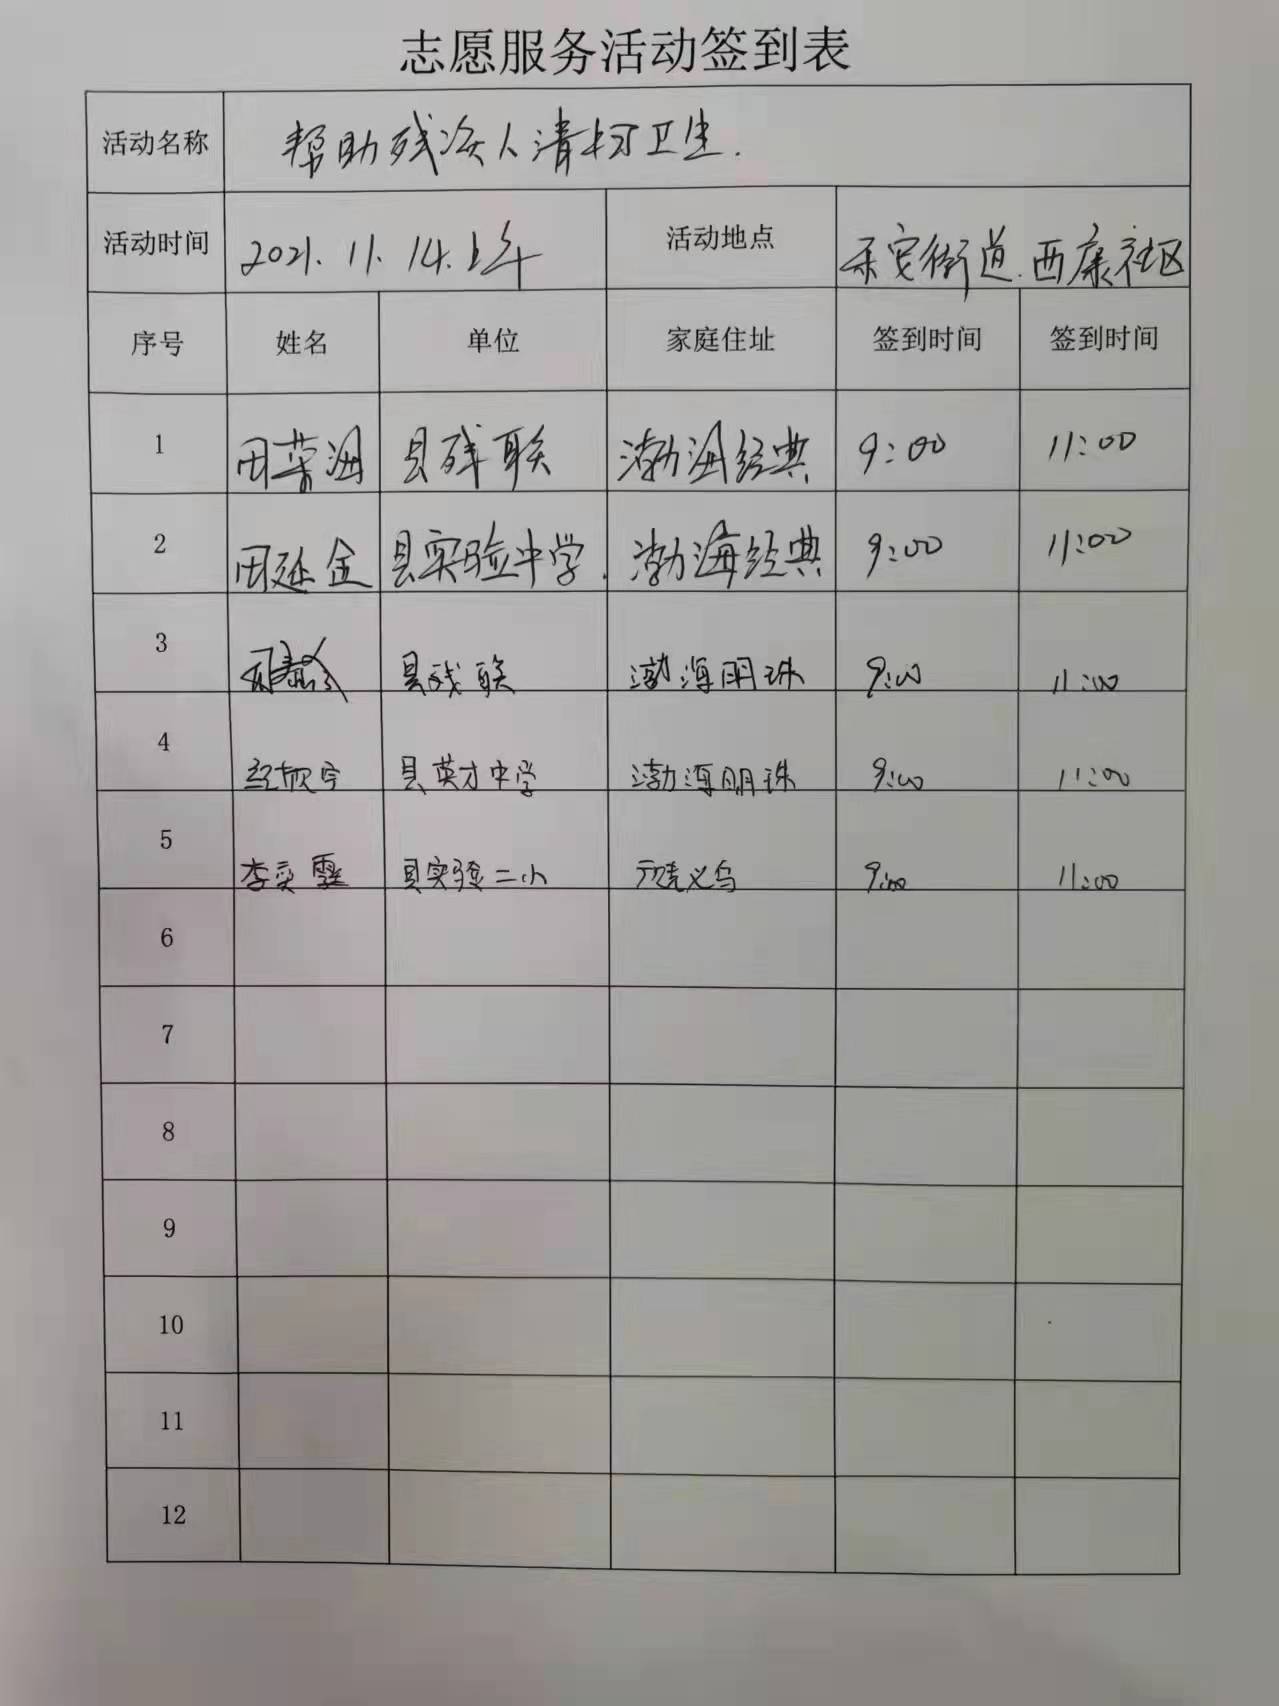 志愿服务活动签到表
活动名称 帮助残疾人清扫卫生.
活动时间 2021.11.14.上午 活动地点 街道.西康社区
序号 姓名 单位 家庭住址 签到时间 签到时间
1 田荣海 县残联 渤海经典 9:00 11:00
2 田延金 县实验中学. 渤海经典 9:00 11:00
3 县残联 渤海明珠 9:00 11:00
4 县英才中学 渤海明珠 9:00 11:00
5 李奕霏 县实验二小 义乌 9:00 11:00
6
7
8
9
10
11
12